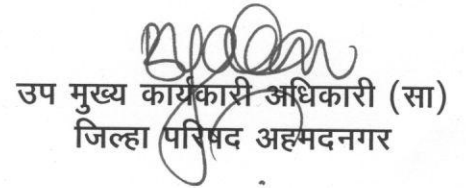 उप मुख्य कार्यकारी अधिकारी (सा)
जिल्हा परिषद अहमदनगर